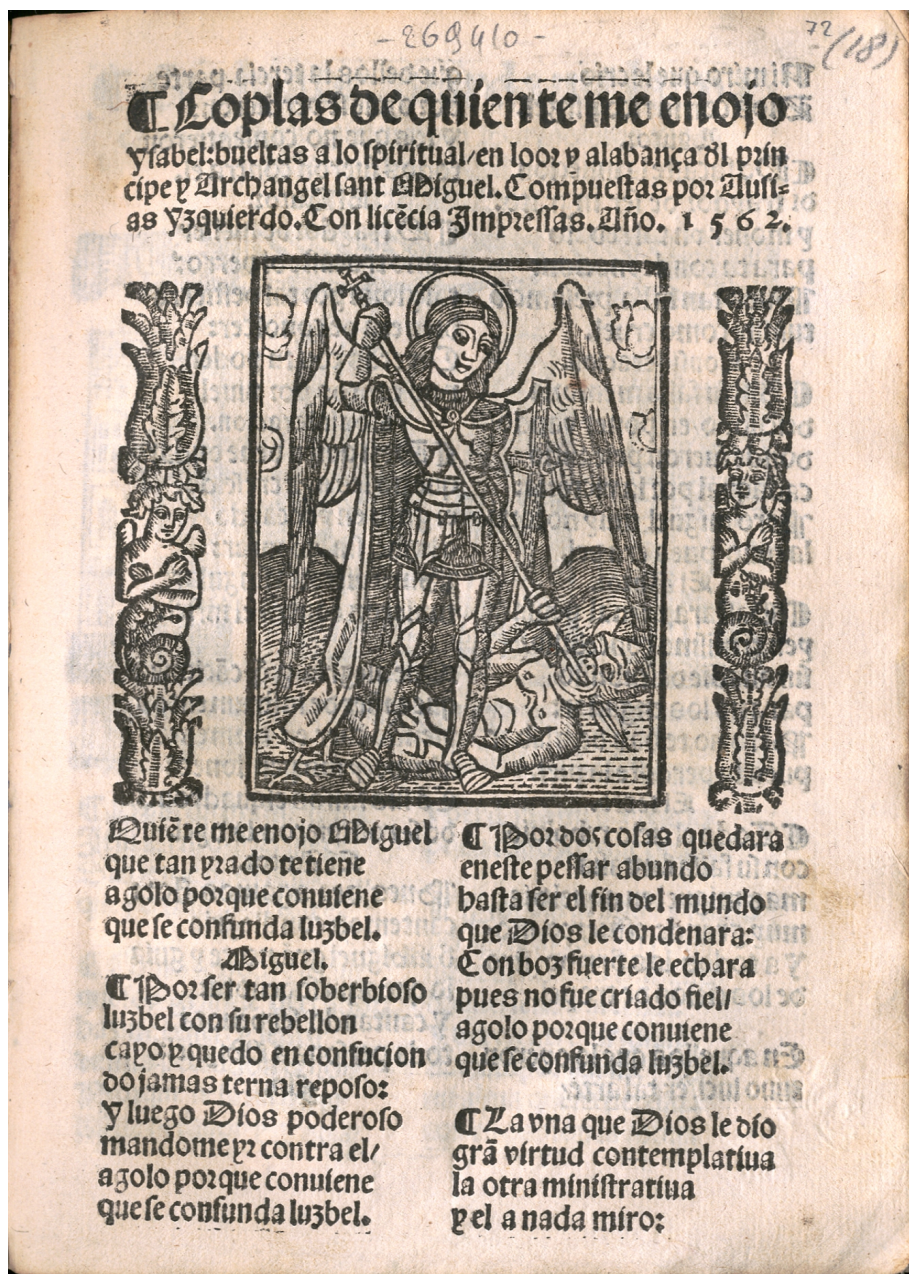 -269410-
72
(18)
¶ Coplas de quien te me enojo
ysabel: bueltas a lo spiritual/en loor y alabança dl prin
cipe y Archangel sant Miguel. Compuestas por Ausi-
as yzquierdo. Con licẽcia Impressas. Año. 1562.
Quiẽ te me enojo Miguel
que tan yrado te tiene
agolo porque conuiene
que se confunda luzbel.
Miguel.
¶ Por ser tan soberbioso
luzbel con su rebellon
cayo y quedo en confucion
do jamas terna reposo:
y luego Dios poderoso
mandome yr contra el/
agolo porque conuiene
que se confunda luzbel.
¶ Por dos cosas quedara
eneste pessar abundo
hasta ser el fin del mundo
que Dios le condenara:
Con boz fuerte le echara
pues no fue criado fiel/
agolo porque conuiene
que se confunda luzbel.
¶ La vna que Dios le dio
grã virtud contemplatiua
la otra ministratiua
y el a nada miro: